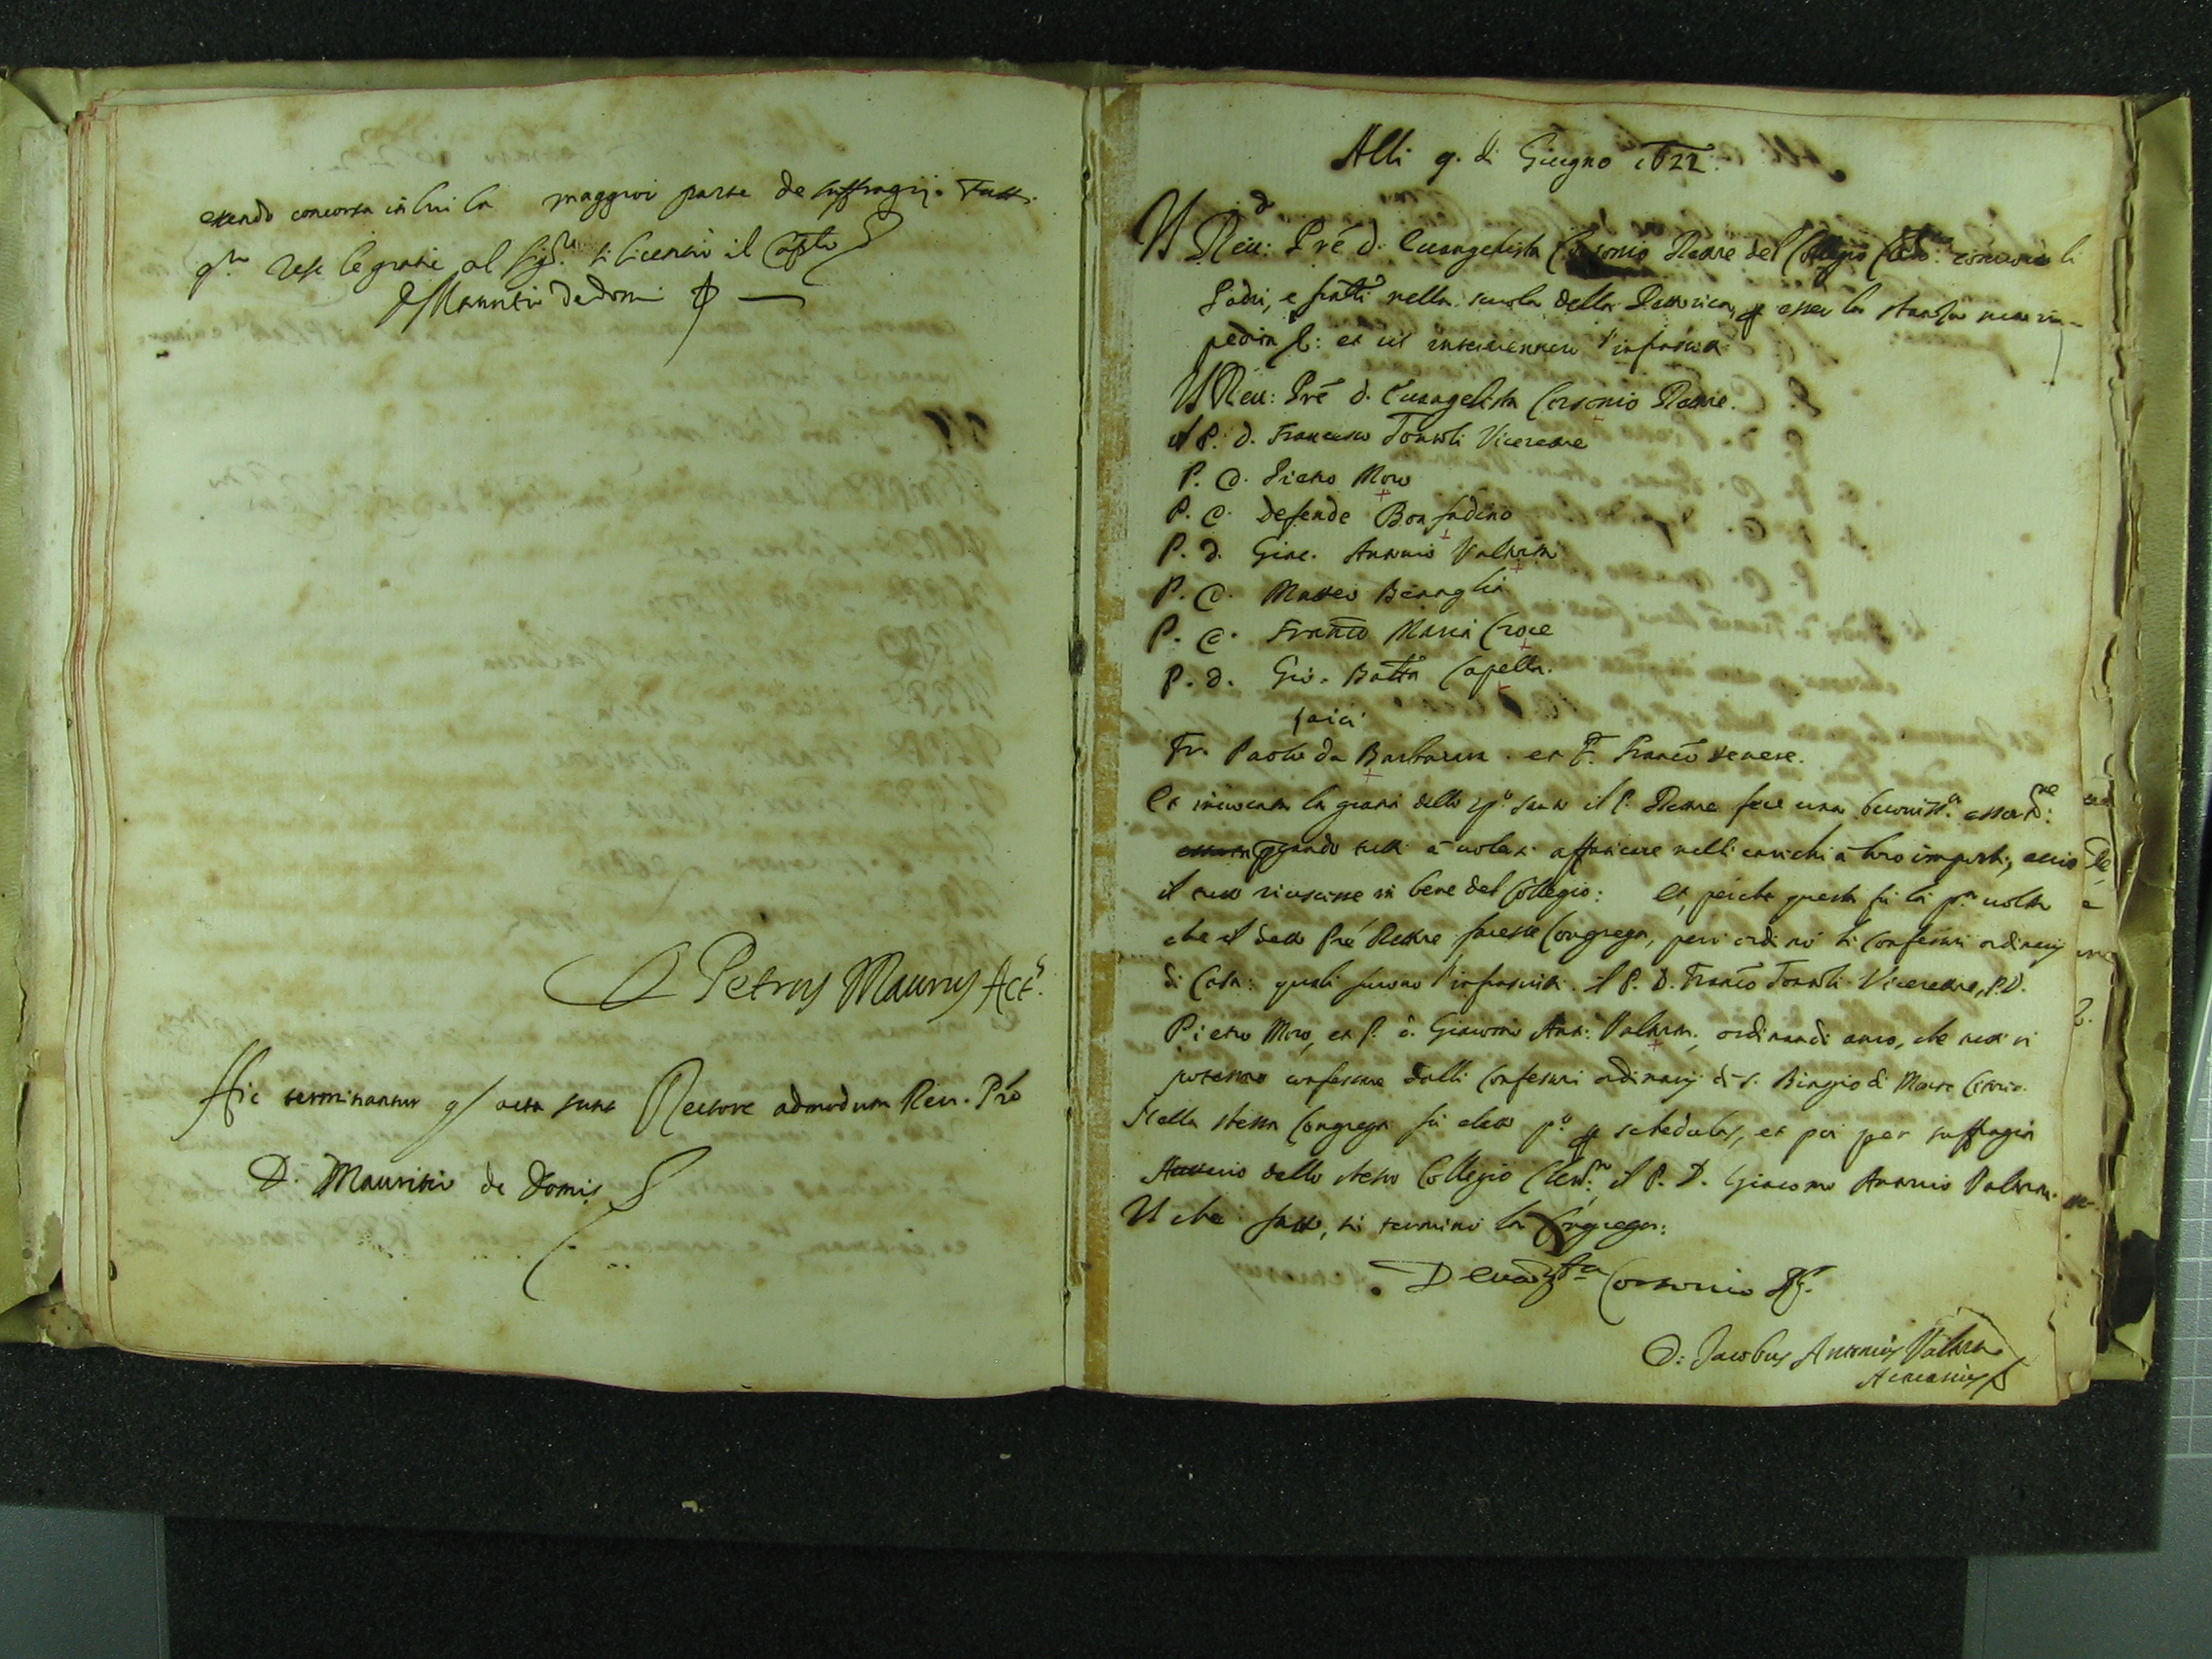 essendo concorsa in lui la maggior parte de suffragij. Fatto
q.to rese le gratie al Sig.re si licentiò il Cap.lo
D Mauritio de Domi
D Petrus Maurus Act.s
Hic terminantur q acta sunt Rectore admodum Reu. Pre
D. Mauritio de Domis
Alli 9. di Giugno 1622.
Il Reu:do Pre d. Euangelista Corsonio Rettore del Collegio Clem.no conuocò li
Padri, e fratelli nella scuola della Rettorica, p esser la stanza
et iui interuennero l'infrascritti
Il Reu: Pre d. Euangelista Corsonio Rettore.
il P. d. Francesco Tontoli Vicerettore
P. d. Pietro Moro
P. d. Defende Bonfadino
P. d. Giac. Antonio Valtorta
P. d. Matteo Benaglia
P. d. Franco Maria Croce
P. d. Gio. Batta Capella.
laici
Fr. Paolo da Barbarano. et F. Franco
Et inuocata la gratia dello sp.o santo il P. Rettore fece una breuiss.a essort.ne:
tutti à uolersi affaticare nelli carichi à loro imposti, acciò
il tutto riuscisse in bene del Collegio: Et, perche questa fù la p.a uolta
che il detto Pre Rettore facesse Congrega, però ordinò li Confessori ordinarij
di Casa: quali furono l'infrascritti. il P. D. Franco Tontoli Vicerettore, P. D.
Pietro Moro, et P. d. Giacomo Ant: Valtorta, ordinando anco, che tutti si
potessero confessare dalli Confessori ordinarij di S. Biagio di Monte Citorio.
Nella stessa Congrega fù eletto p.o p schedulas, et poi per suffragia
Attuario dello stesso Collegio Clem.no il P. D. Giacomo Antonio Valtorta.
Il che fatto, si terminò la Congrega:
D Euang.sta Corsonio
D: Jacobus Antonius Valtorta
Actuarius